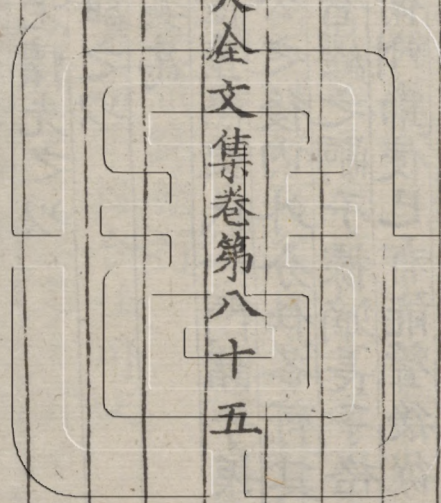 全文集卷第八十五